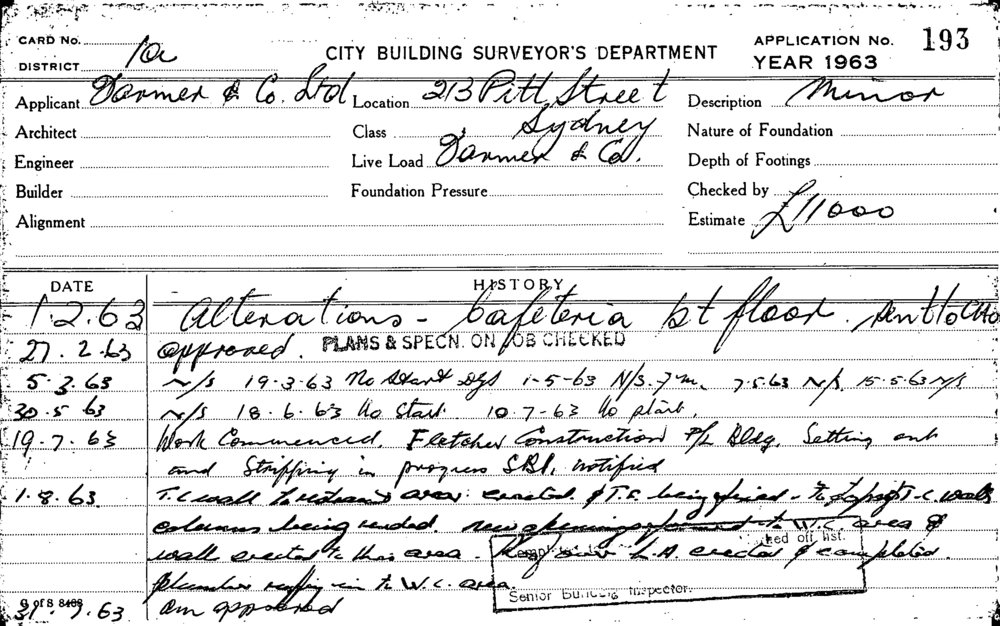 CARD No.
DISTRICT 10a
CITY BUILDING SURVEYOR'S DEPARTMENT
APPLICATION No. 193
YEAR 1963
Applicant Farmer & Co. Ltd Location 213 Pitt Street Description Minor
Architect Class Sydney Nature of Foundation
Engineer Live Load Farmer & Co. Depth of Footings
Builder Foundation Pressure Checked by
Alignment Estimate £11000
DATE HISTORY
1.2.63 Alterations - Cafeteria 1st floor. sent to
27.2.63 approved. PLANS & SPECN. ON JOB CHECKED
5.3.63 N/S 19-3-63 No Start 1-5-63 N/S. 7.5.63 N/S. 15.5.63 N/S
30.5.63 N/S 18.6.63 No Start 10.7-63 No start.
19.7.63 Work Commenced. Fletcher Construction P/L Bldg. Setting out
and Stripping in progress notified
1.8.63. T.C wall area erected & T.C. being - T.C. walls
columns being rended. new to W.C. area &
wall erected to this area. erected & completed.
plumber in to W.C. area.
ked off list.
Senior Building Inspector.
9 of 8 8403
31.9.63 approved